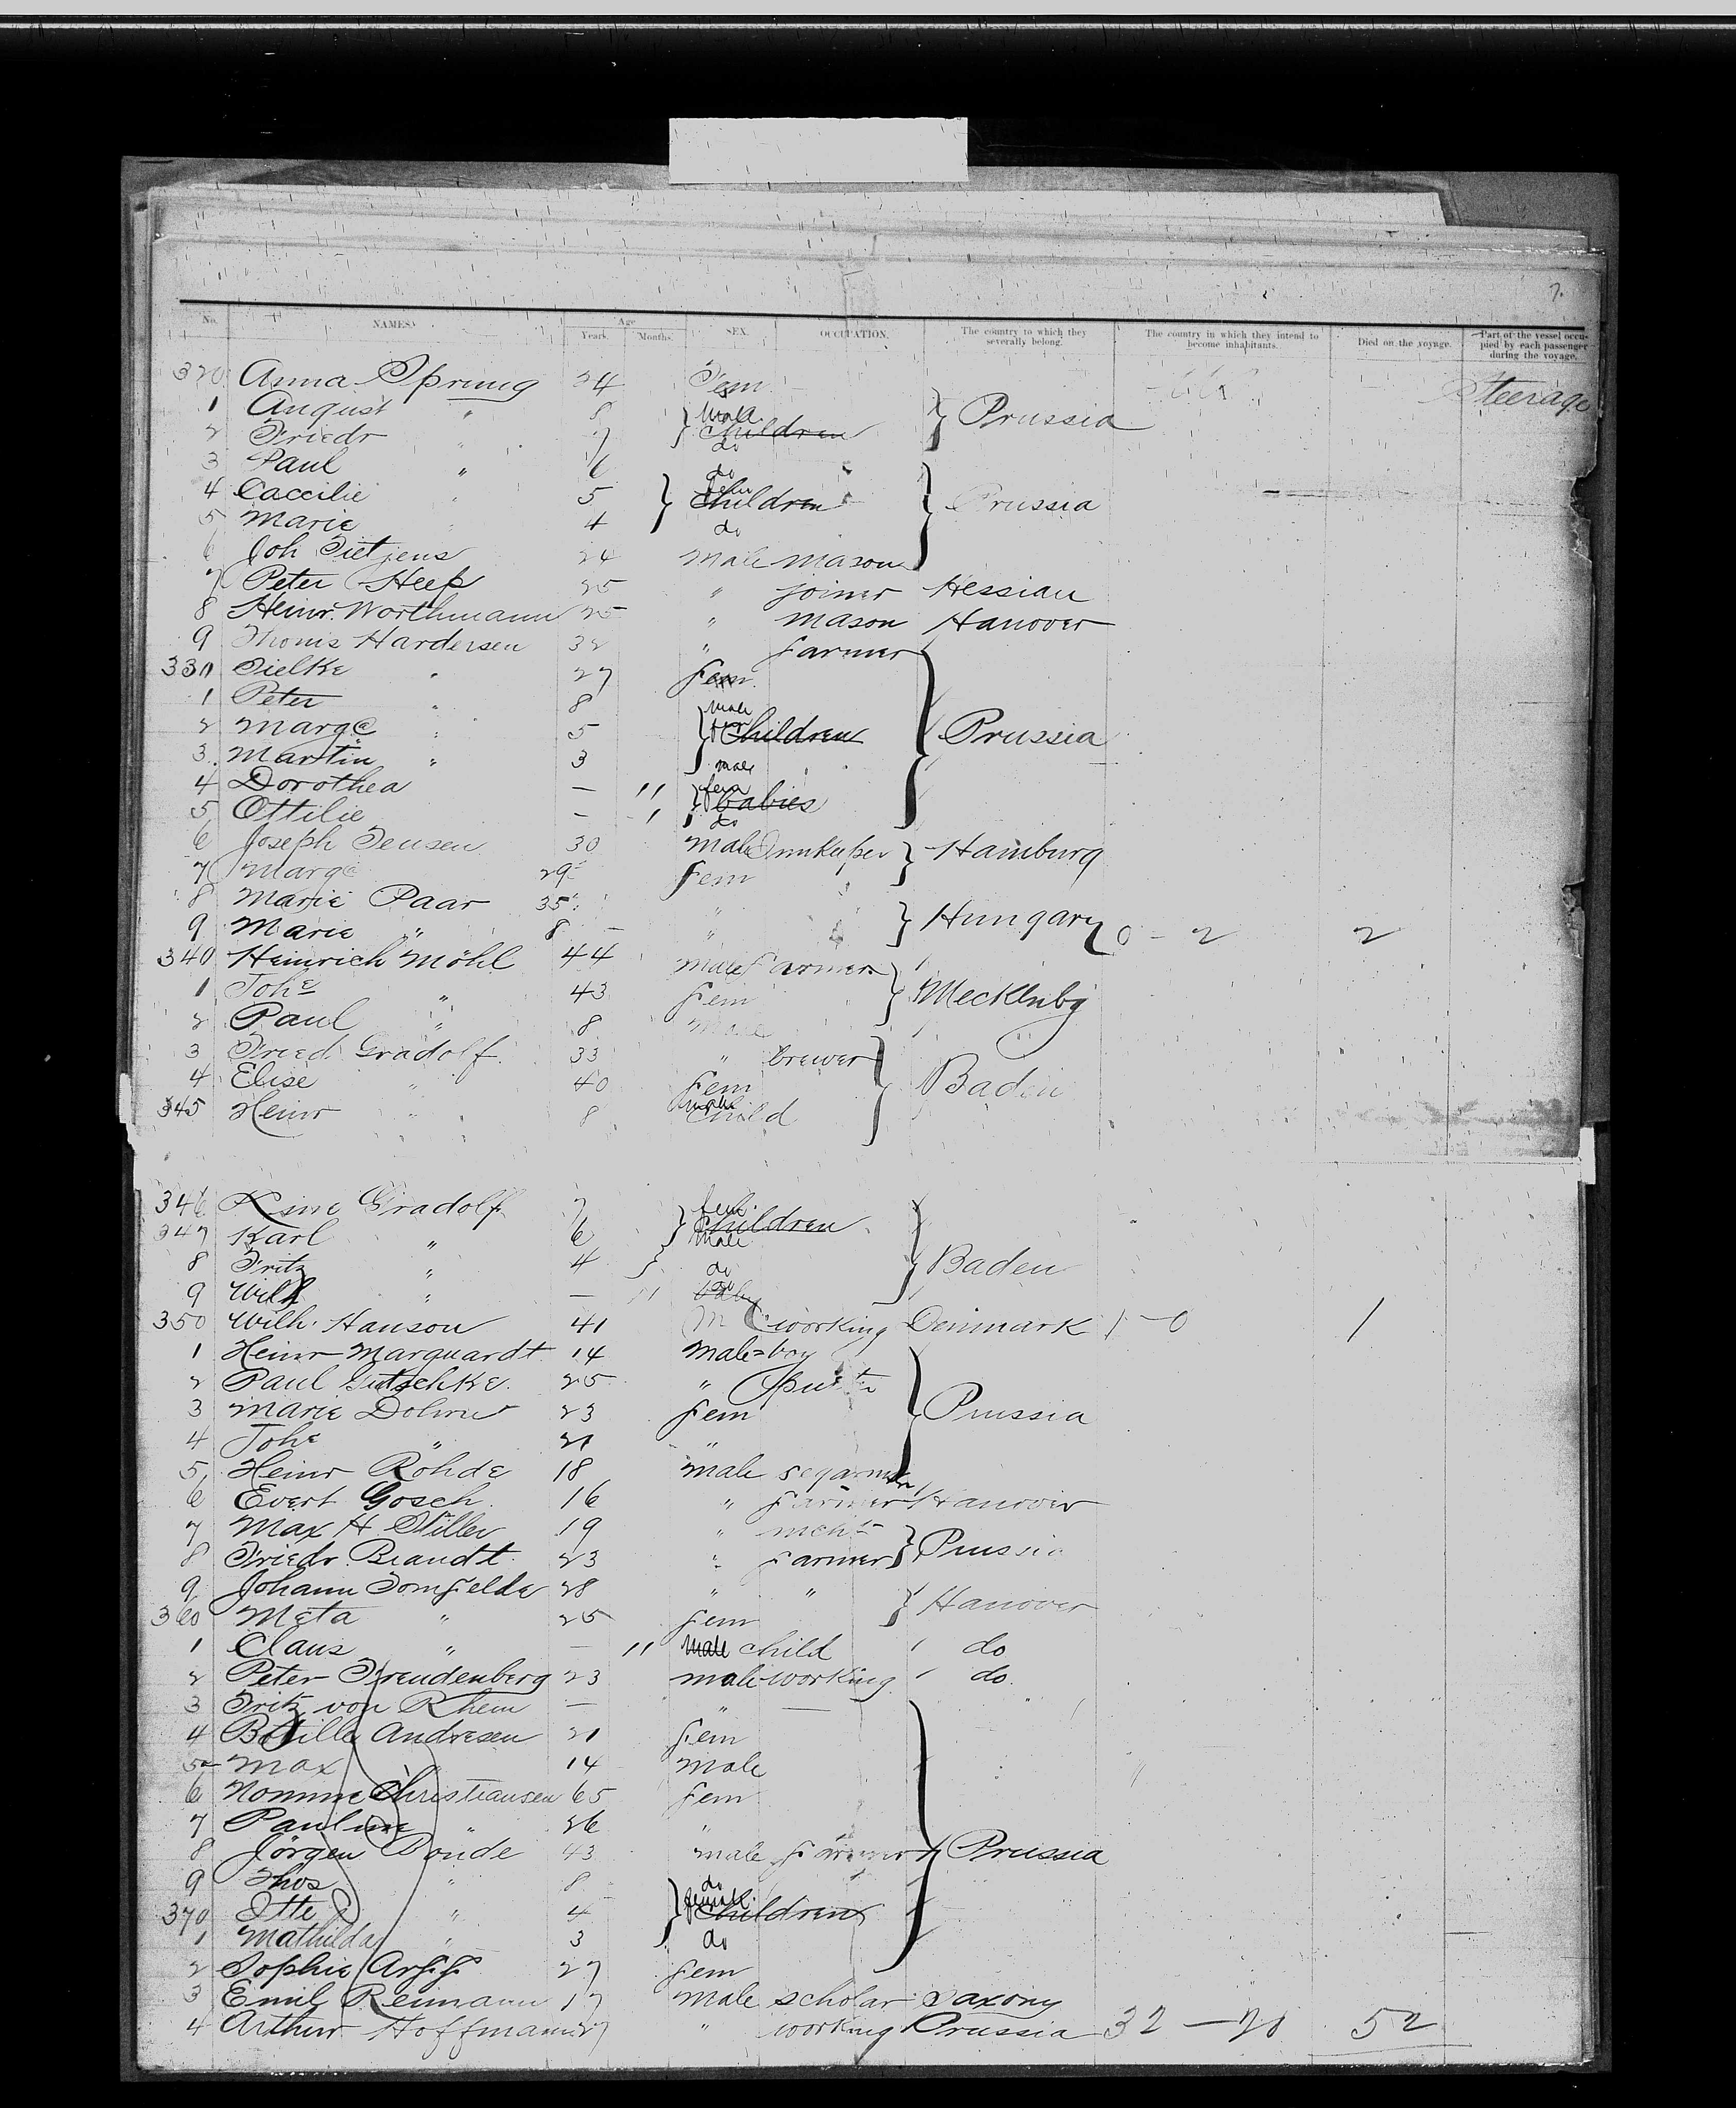 7.
No. NAMES. Age Years. Months. SEX. OCCUPATION. The country to which they severally belong. The country in which they intend to become inhabitants. Died on the voyage. Part of the vessel occupied by each passenger during the voyage.
320 Anna Sprung 34 Fem Steerage
1 August " 8 Male Prussia
2 Friedr " 7 Children do
3 Paul " 6 do
4 Caecilie " 5 fem Children Prussia
5 Marie " 4 do
6 Joh Tietjens 24 male mason
7 Peter Heep 25 " joiner Hessian
8 Heinr. Worthmann 25 " mason Hanover
9 Thoms Hardersen 32 " farmer
330 Sielke " 27 fem
1 Peter " 8 male
2 Marg@ " 5 fem Children Prussia
3 Martin " 3 male
4 Dorothea — 11 fem babies
5 Ottilie — 1 do
6 Joseph Jensen 30 male Innkeeper Hamburg
7 Marg@ 29 fem
8 Marie Paar 35 " Hungary
9 Marie " 8 — " 0 - 2 2
340 Heinrich Möhl 44 male farmer
1 Johe " 43 fem Mecklnbg
2 Paul " 8 male
3 Fried Gradolf 33 " brewer
4 Elise " 40 fem Baden
345 Heinr " 8 male Child
346 Gradolf 7 fem Children
347 Karl " 6 male
8 Fritz " 4 do Baden
9 Wilh " — 11 do baby
350 Wilh. Hanson 41 M working Denmark 1 - 0 1
1 Heinr Marquardt 14 male=boy
2 Paul Gutschke 25 "
3 Marie Dohrn 23 fem Prussia
4 Johe " 21 "
5 Heinr Rohde 18 male
6 Evert Gosch 16 " farmer Hanover
7 Max H Stiller 19 " mcht
8 Friedr. Brandt 23 " farmer Prussia
9 Johann Tomfelde 28 " "
360 Meta " 25 fem Hanover
1 Claus " — 11 male child do
2 Peter Freudenberg 23 male working do.
3 Fritz von Rhein — " —
4 Andresen 21 fem
5 Max " 14 male
6 Nomme Christiansen 65 fem
7 Pauline " 26 "
8 Jörgen Bonde 43 male farmer Prussia
9 Thos " 8 do
370 Itte " 4 female Children
1 Mathilda " 3 do
2 Sophie 27 fem
3 Emil Reimann 17 male scholar Saxony
4 Arthur Hoffmann 27 " working Prussia 32 - 20 52